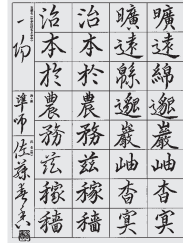 曠遠綿邈巖岫杳冥
曠遠緜邈巖岫杳冥
治本於農務茲稼穡
治本於農務茲稼穡
準師
佐藤